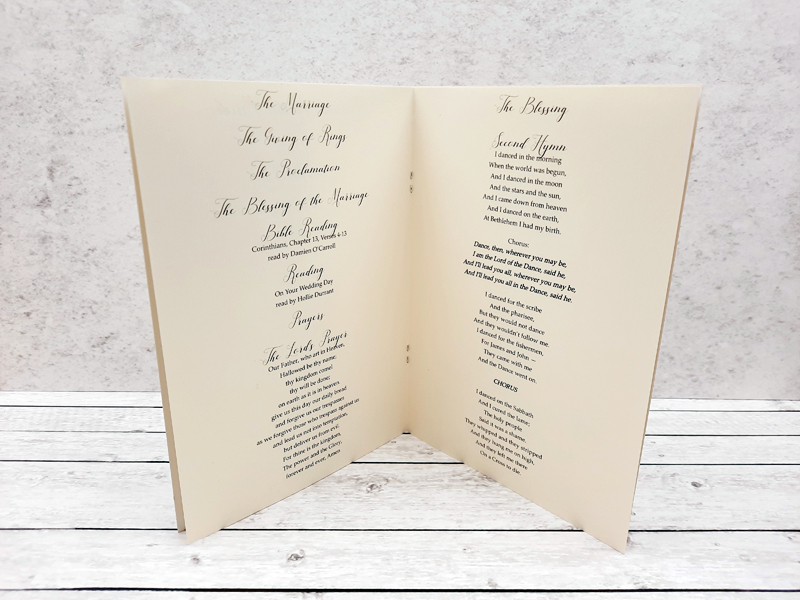 The Marriage
The Giving of Rings
The Proclamation
The Blessing of the Marriage
Bible Reading
Corinthians, Chapter 13, Verses 4-13
read by Damien O'Carroll
Reading
On Your Wedding Day
read by Hollie Durrant
Prayers
The Lords Prayer
Our Father, who art in Heaven,
Hallowed be thy name;
thy kingdom come;
thy will be done;
on earth as it is in heaven.
give us this day our daily bread
and forgive us our trespasses
as we forgive those who trespass against us
and lead us not into temptation,
but deliver us from evil.
For thine is the kingdom,
The power and the Glory,
forever and ever, Amen
The Blessing
Second Hymn
I danced in the morning
When the world was begun,
And I danced in the moon
And the stars and the sun,
And I came down from heaven
And I danced on the earth,
At Bethlehem I had my birth.
Chorus:
Dance, then, wherever you may be,
I am the Lord of the Dance, said he,
And I'll lead you all, wherever you may be,
And I'll lead you all in the Dance, said he.
I danced for the scribe
And the pharisee,
But they would not dance
And they wouldn't follow me.
I danced for the fishermen,
For James and John —
They came with me
And the Dance went on.
CHORUS
I danced on the Sabbath
And I cured the lame;
The holy people
Said it was a shame.
They whipped and they stripped
And they hung me on high,
And they left me there
On a Cross to die.